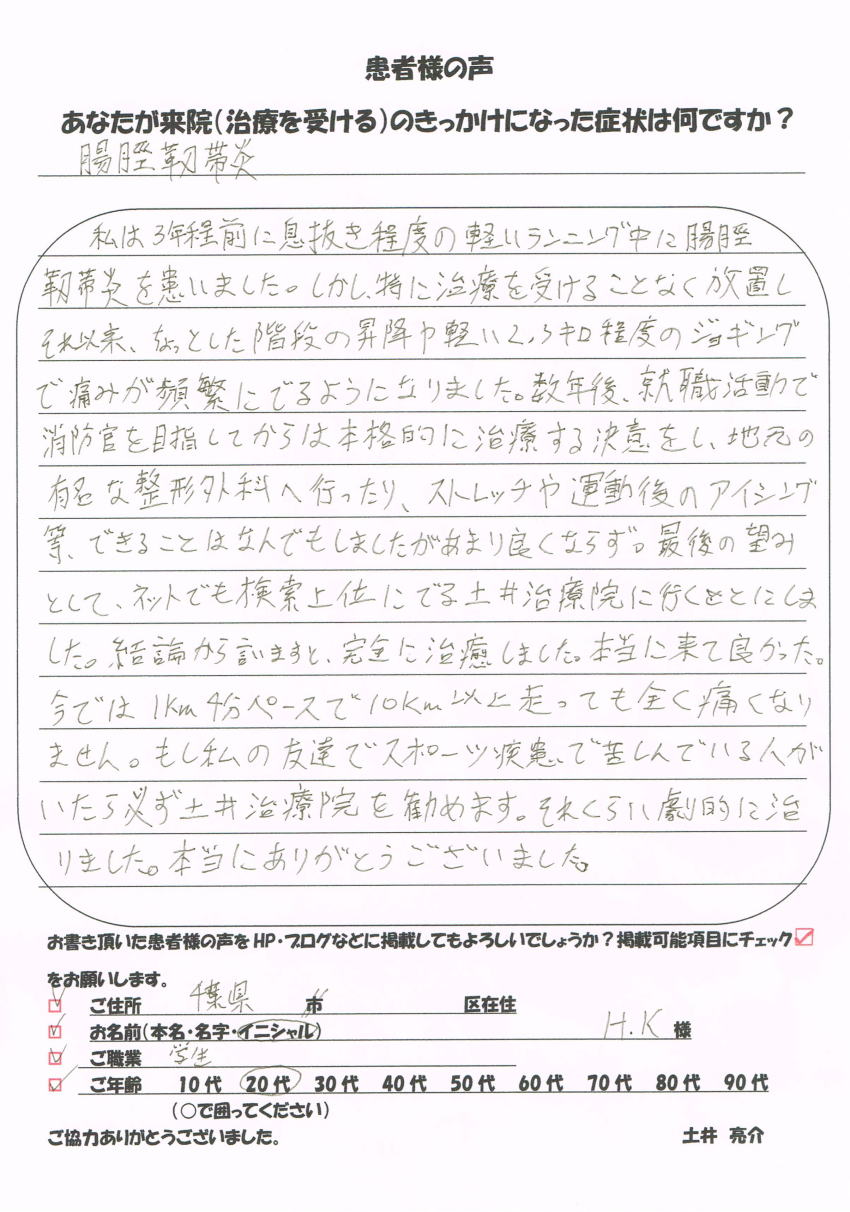 患者様の声
あなたが来院(治療を受ける)のきっかけになった症状は何ですか？
腸脛靭帯炎
私は3年程前に息抜き程度の軽いランニング中に腸脛
靭帯炎を患いました。しかし、特に治療を受けることなく放置し
それ以来、ちょっとした階段の昇降や軽い2,3キロ程度のジョギング
で痛みが頻繁にでるようになりました。数年後、就職活動で
消防官を目指してからは本格的に治療する決意をし、地元の
有名な整形外科へ行ったり、ストレッチや運動後のアイシング
等、できることはなんでもしましたがあまり良くならず。最後の望み
として、ネットでも検索上位にでる土井治療院に行くことにしま
した。結論から言いますと、完全に治癒しました。本当に来て良かった。
今では1km4分ペースで10km以上走っても全く痛くなり
ません。もし私の友達でスポーツ疾患で苦しんでいる人が
いたら必ず土井治療院を勧めます。それくらい劇的に治
りました。本当にありがとうございました。
お書き頂いた患者様の声をHP・ブログなどに掲載してもよろしいでしょうか？掲載可能項目にチェック☑
をお願いします。
☑ ご住所 千葉県 市 区在住
☑ お名前(本名・名字・イニシャル) H.K 様
☑ ご職業 学生
☑ ご年齢 10代 20代 30代 40代 50代 60代 70代 80代 90代
(○で囲ってください)
ご協力ありがとうございました。 土井 亮介